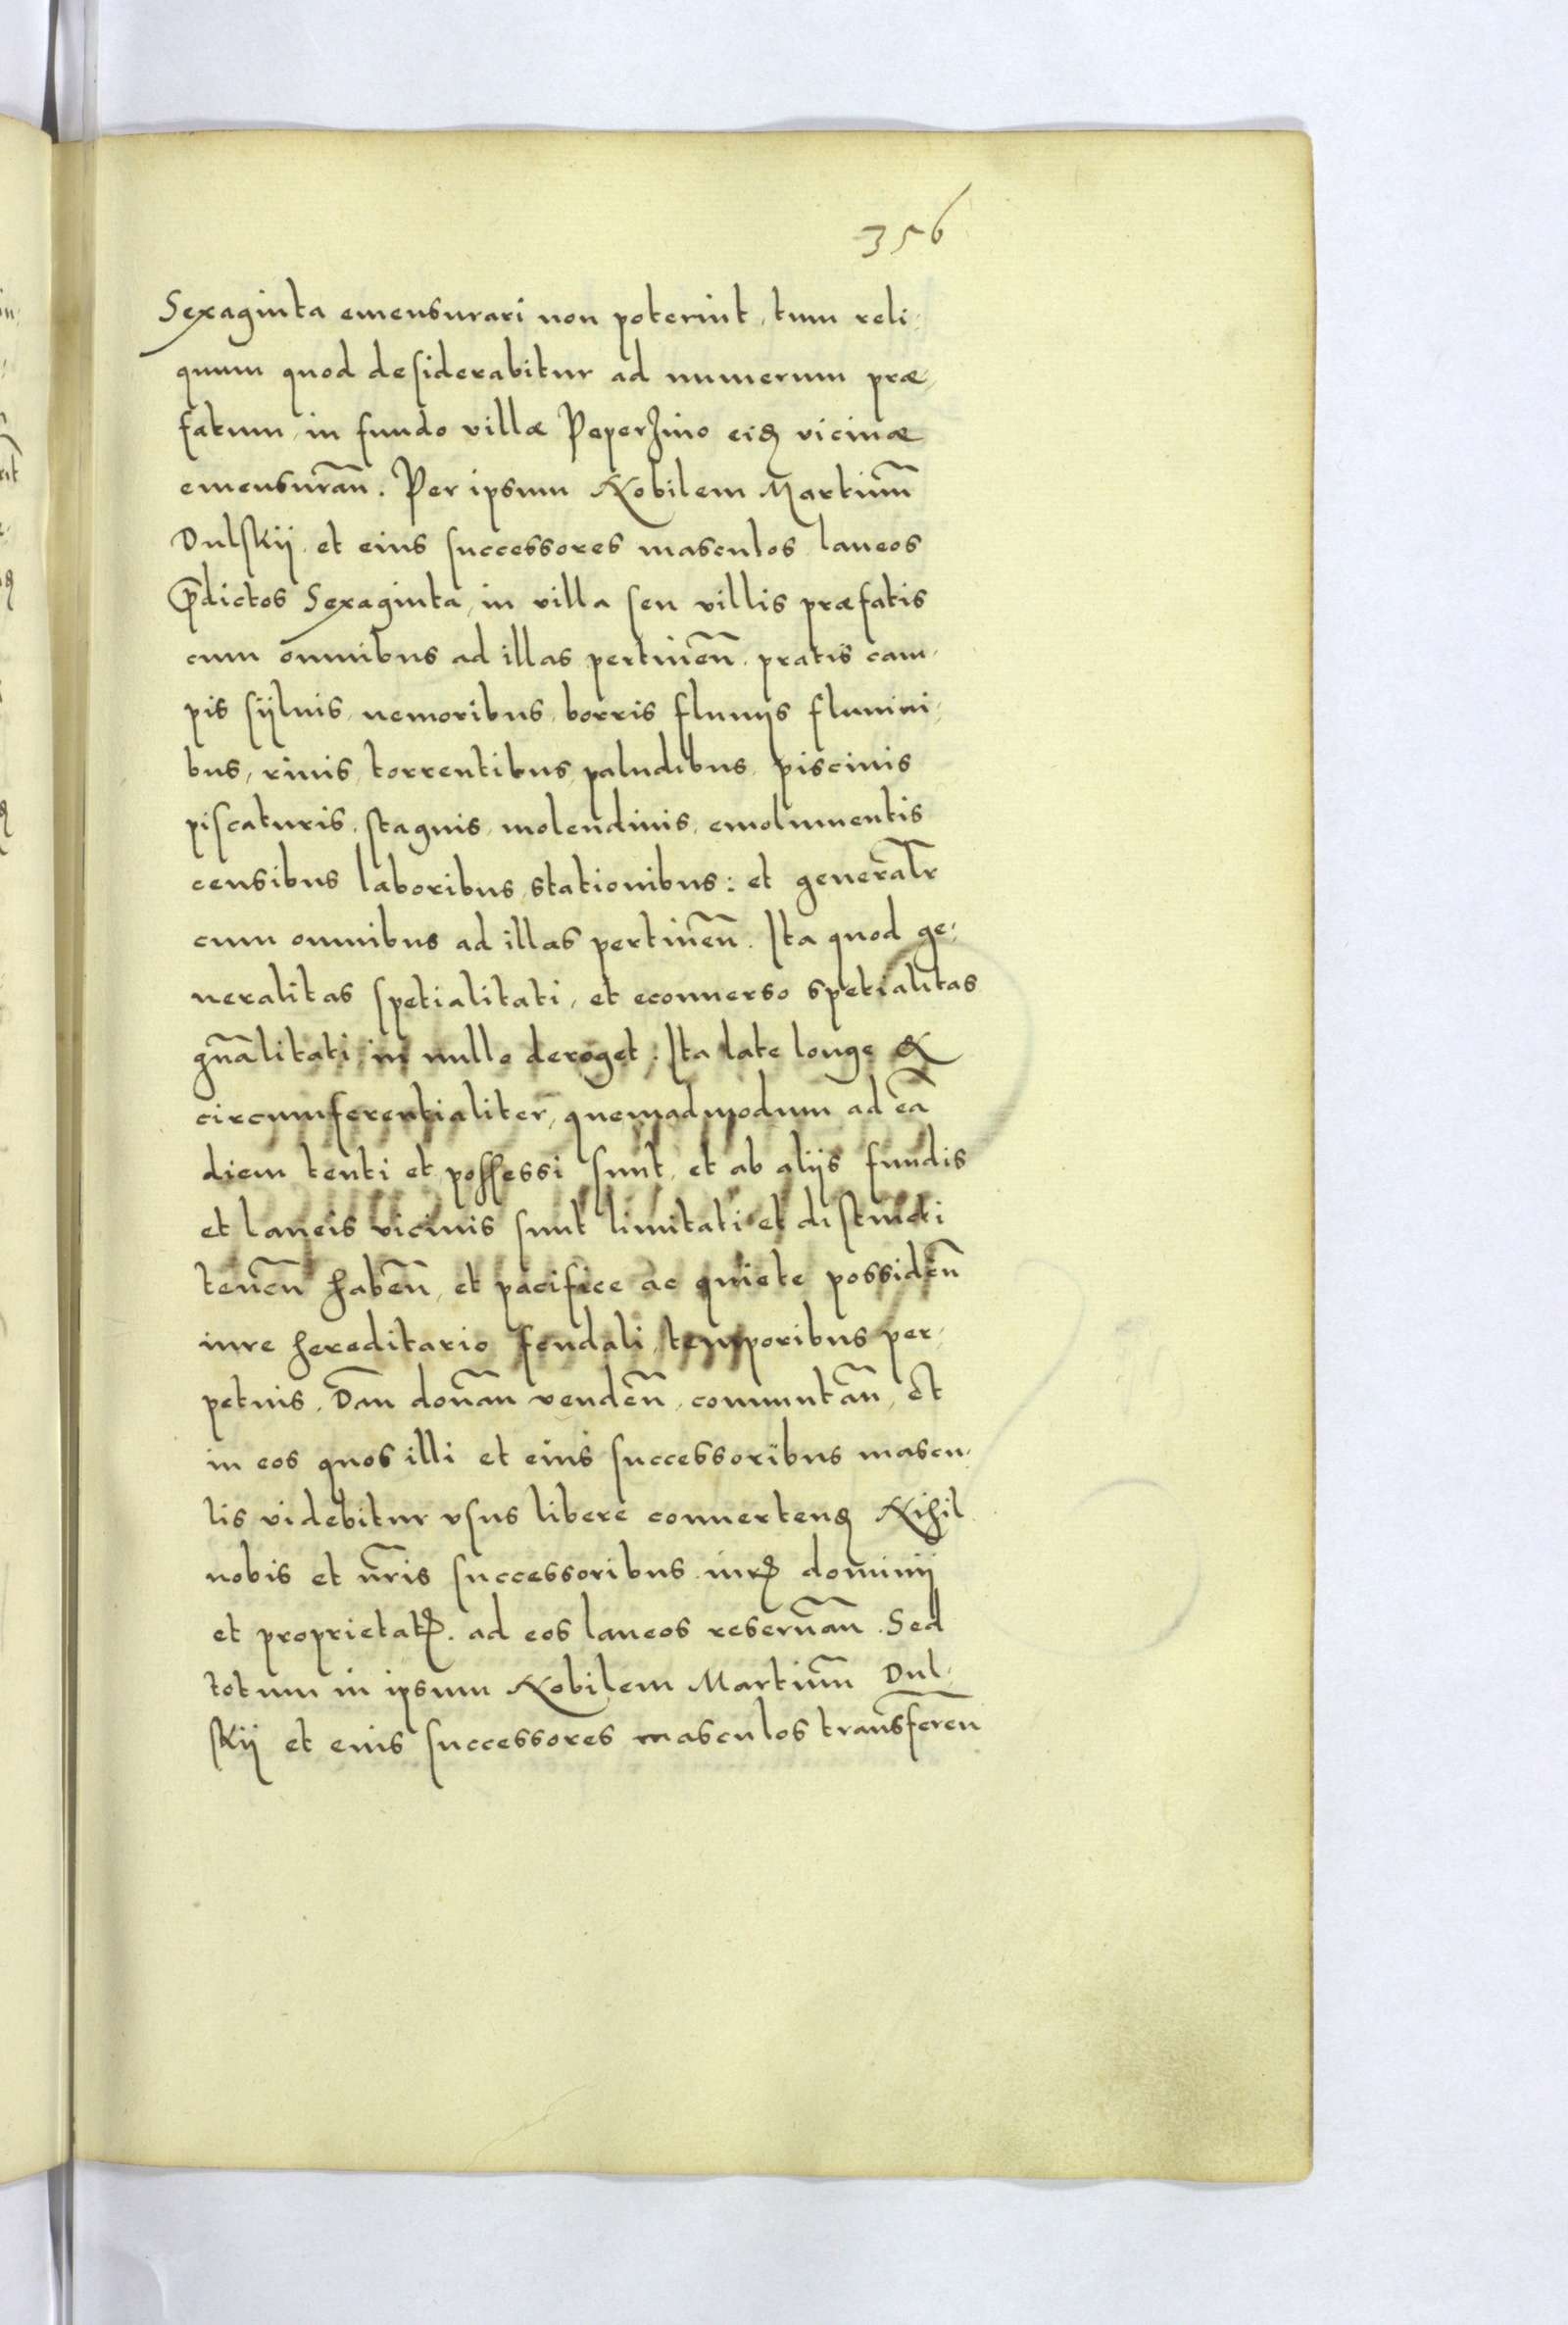 356
Sexaginta emensurari non poterint, tum reli-
quum quod desiderabitur ad numerum præ-
fatum, in fundo villæ Peperzino eiꝗ vicinæ
emensurañ. Per ipsum Nobilem Martinū
Dulskij et eius successores masculos laneos
p̄dictos Sexaginta, in villa seu villis præfatis
cum omnibus ad illas pertineñ. pratis cam-
pis sijluis, nemoribus, borris fluuijs flumini-
bus, riuis, torrentibus, paludibus, piscinis
piscaturis, stagnis, molendinis, emolumentis
censibus laboribus, stationibus: et generalr̄
cum omnibus ad illas pertineñ. Ita quod ge-
neralitas spetialitati, et econuerso spetialitas
gn̄alitati in nullo deroget. Ita late longe &
circumferentialiter, quemadmodum ad eā
diem tenti et possessi sunt, et ab alijs fundis
et laneis vicinis sunt limitati et distincti
teneñ habeñ, et pacifice ac quiete possideñ
iure hereditario feudali, temporibus per-
petuis. Dañ donañ vendeñ, commutañ, et
in eos quos illi et eius successoribus mascu-
lis videbitur vsus libere conuertenꝗ Nihil
nobis et nr̄is successoribus iurꝭ dominij
et proprietatꝭ. ad eos laneos reseruañ. Sed
totum in ipsum Nobilem Martinū Dul-
skij et eius successores masculos transfereñ